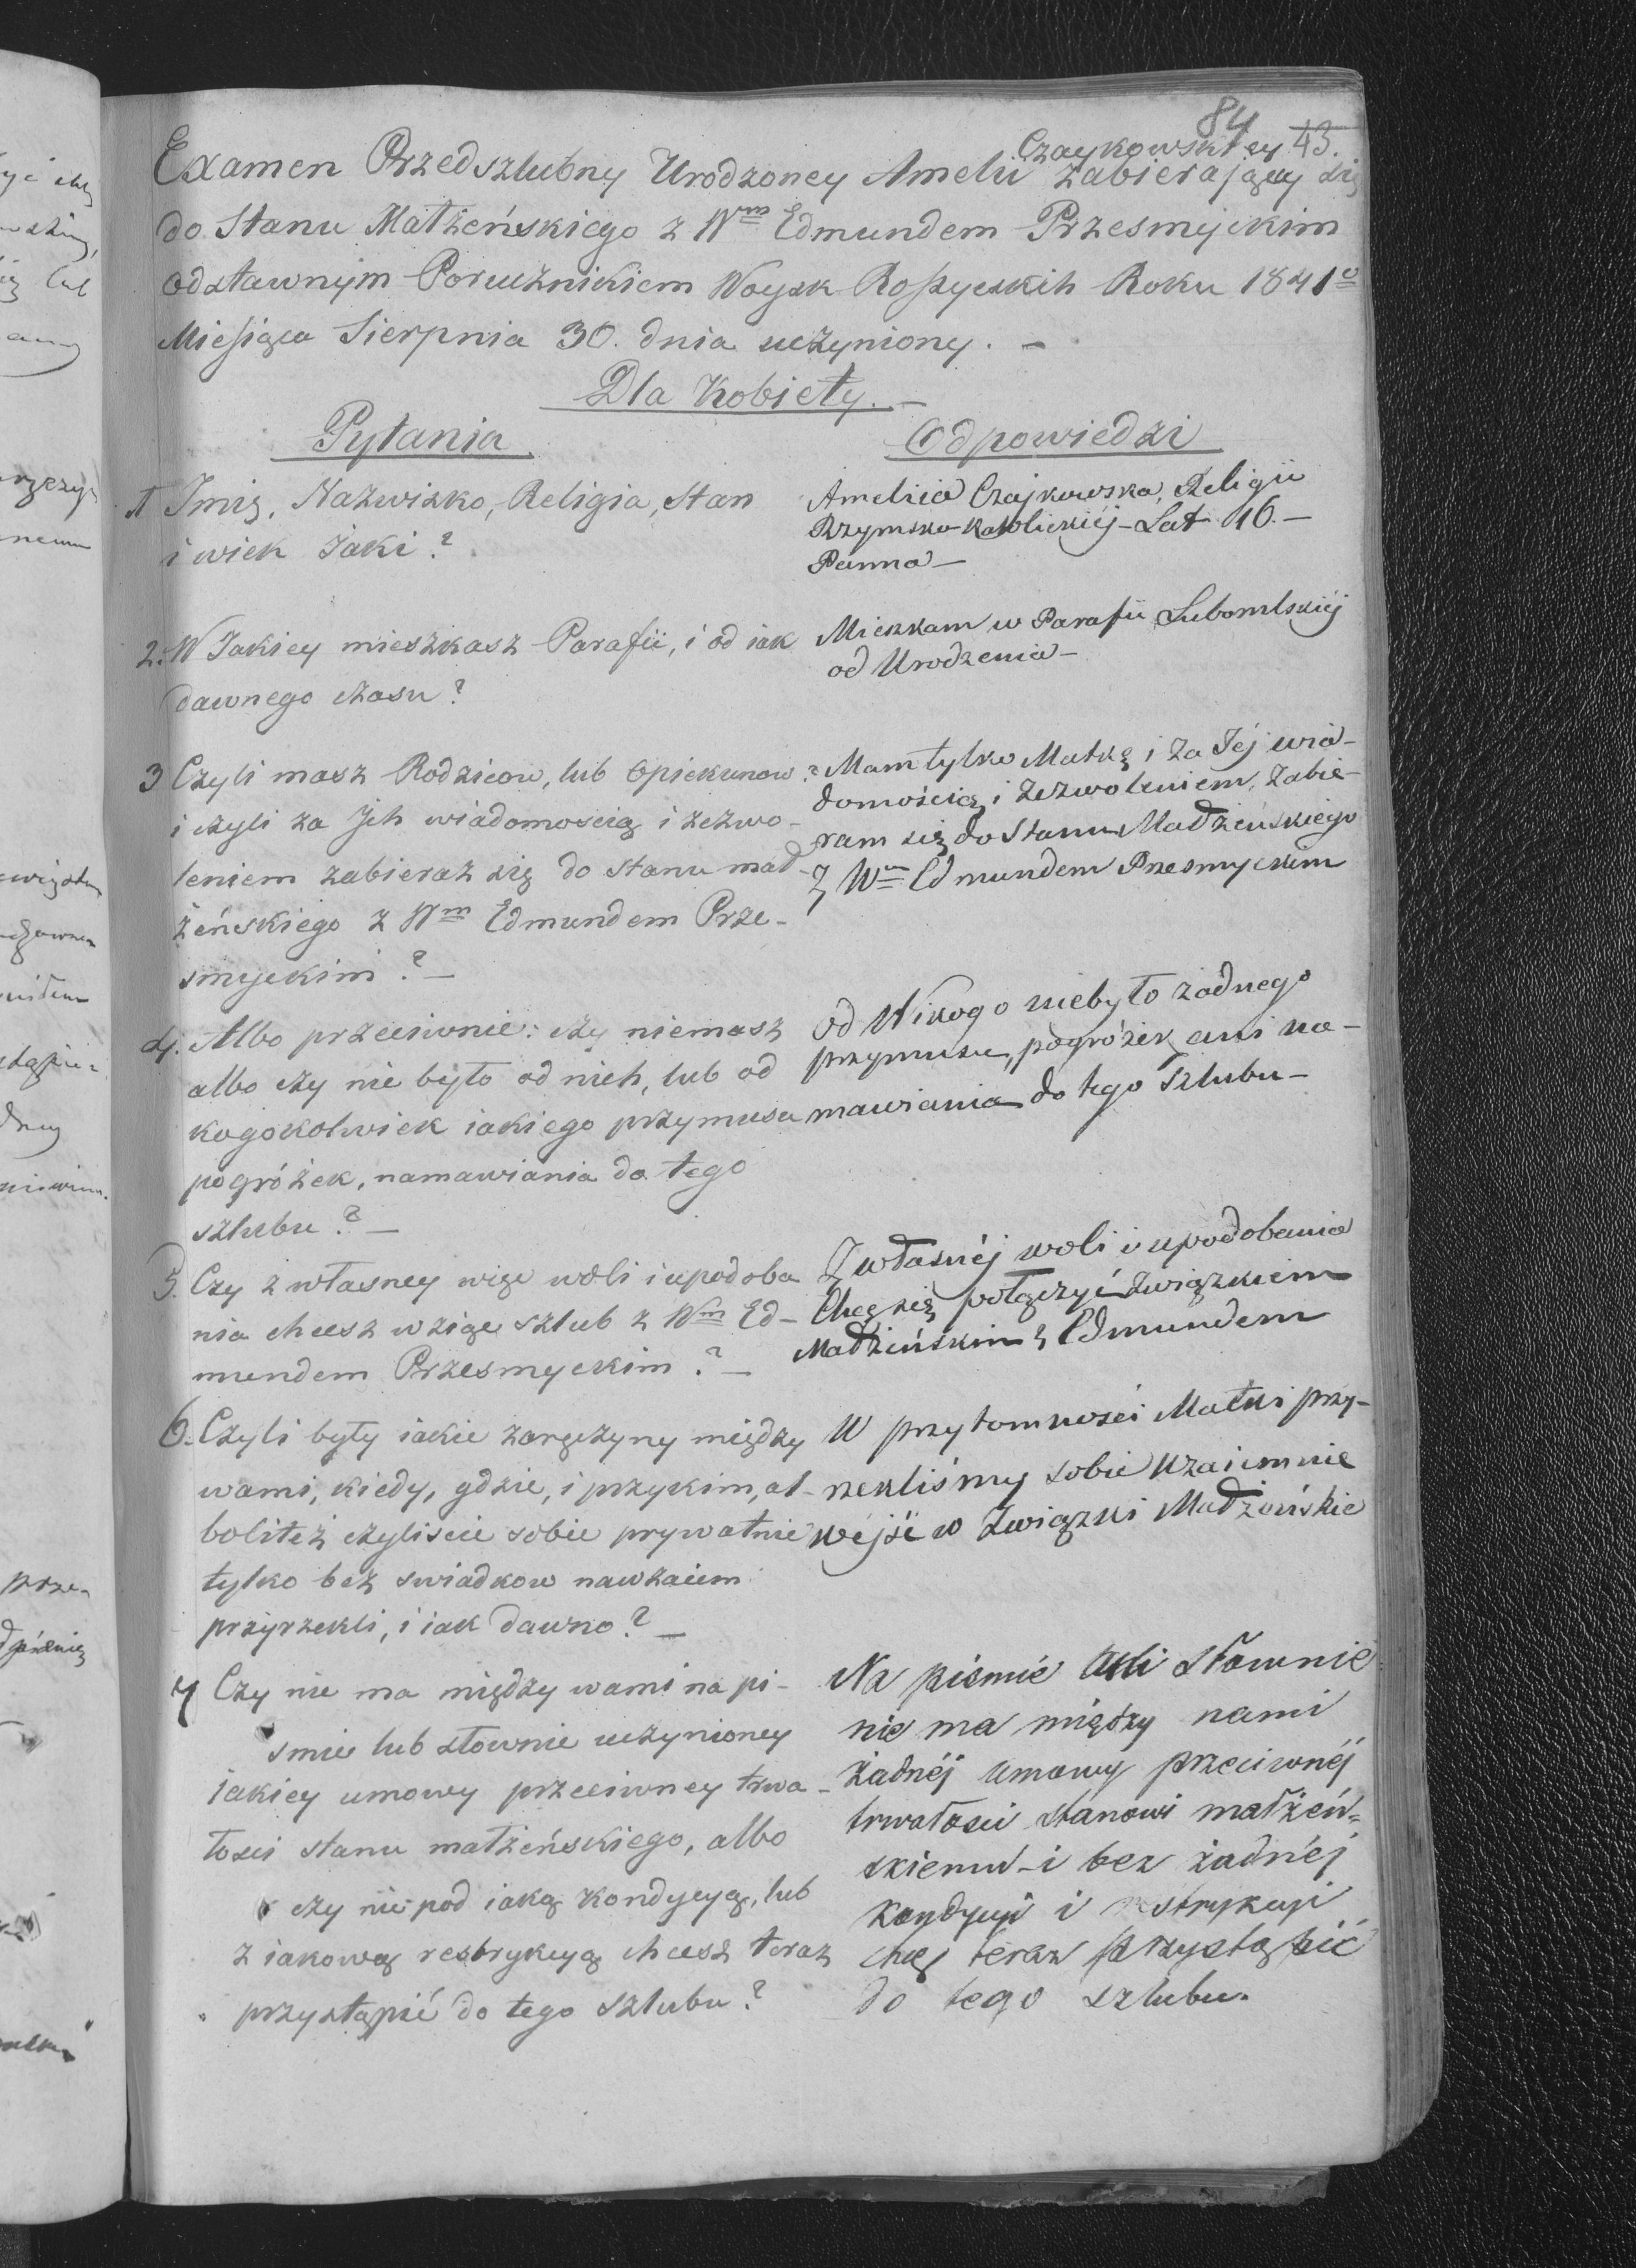 84
Czaykowskiey 43.
Examen Przedszlubny Urodzoney Amelii zabierającey się
do Stanu Małżeńskiego z Wm Edmundem Przesmyckim
odstawnym Porucznikiem Woysk Roszyeskich Roku 1841o
Miesiąca Sierpnia 30. dnia uczyniony. –
Dla Kobiety. –
Pytania
Odpowiedzi
1 Imię, Nazwisko, Religia, Stan
i wiek Jaki?
Amelija Czajkowska, Religii
Rzymsko-Katolickiéj – Lat 16. –
Panna –
2. W Jakiey mieszkasz Parafii, i od iak
dawnego czasu?
Mieszkam w Parafii Lubomlskiéj
od Urodzenia –
3 Czyli masz Rodzicow, lub Opiekunow?
i czyli za Jch wiadomoscią i zezwo-
leniem zabierasz się do stanu mał-
żeńskiego z Wm Edmundem Prze-
smyckim? –
Mam tylko Matkę i za Jéj wia-
domością i zezwoleniem, zabie-
ram się do Stanu Małżeńskiego
z Wm Edmundem Przesmyckim
4. Albo przeciwnie: czy niemasz
albo czy nie było od nich, lub od
kogokolwiek iakiego przymusu
pogróżek, namawiania do tego
szlubu? –
od Nikogo niebyło żadnego
przymusu, pogróżek ani na-
mawiania do tego Szlubu –
5. Czy z własney więc woli i upodoba
nia chcesz wziąć szlub z Wm Ed-
mundem Przesmyckim? –
Z własnéj woli i upodobania
Chcę się połączyć związkiem
Małżeńskim z Edmundem
6. Czyli były iakie zaręczyny między
wami, kiedy, gdzie, i przykim, al-
boliteż czyliscie sobie prywatnie
tylko bez swiadkow nawzaiem
przyrzekli, i iak dawno? –
W przytomności Matki przy-
rzekliśmy sobie wzaiemnie
wejść w Związki Małżeńskie
7 Czy nie ma między wami na pi-
smie lub słownie uczynioney
iakiey umowy przeciwney trwa-
łosci stanu małżeńskiego, albo
czy nie pod iaką kondycyą, lub
z iakową restrykcyą chcesz teraz
przystąpić do tego szlubu?
Na pismie Ani słownie
nie ma między nami
żadnéj umowy przeciwnéj
trwałości stanowi małżeń-
skiemu – i bez żadnéj
kondycyi i restrykcyi
chcę teraz przystąpić
do tego szlubu.